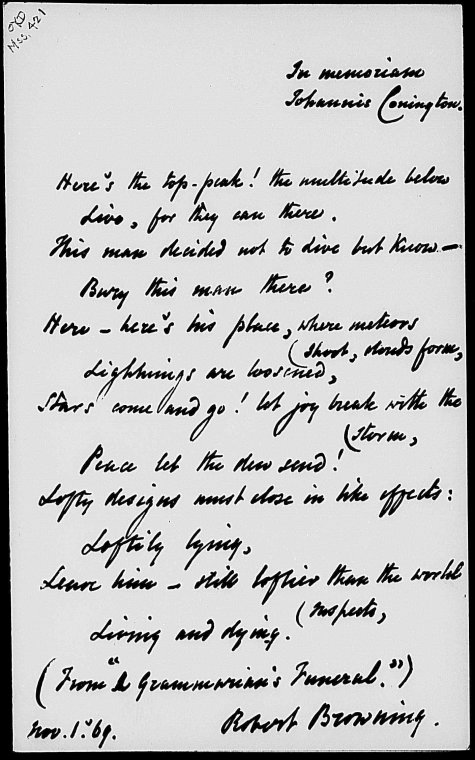 OXD
Mss. 421
In memoriam
Johannis Conington.
Here's the top-peak! the multitude below
Live, for they can there.
This man decided not to Live but Know —
Bury this man there?
Here — here's his place, where meteors
(shoot, clouds form,
Lightnings are loosened,
Stars come and go! let joy break with the
(storm,
Peace let the dew send!
Lofty designs must close in like effects:
Loftily lying,
Leave him — still loftier than the world
(suspects,
Living and dying.
(From "A Grammarian's Funeral.")
Nov. 1. '69.
Robert Browning.